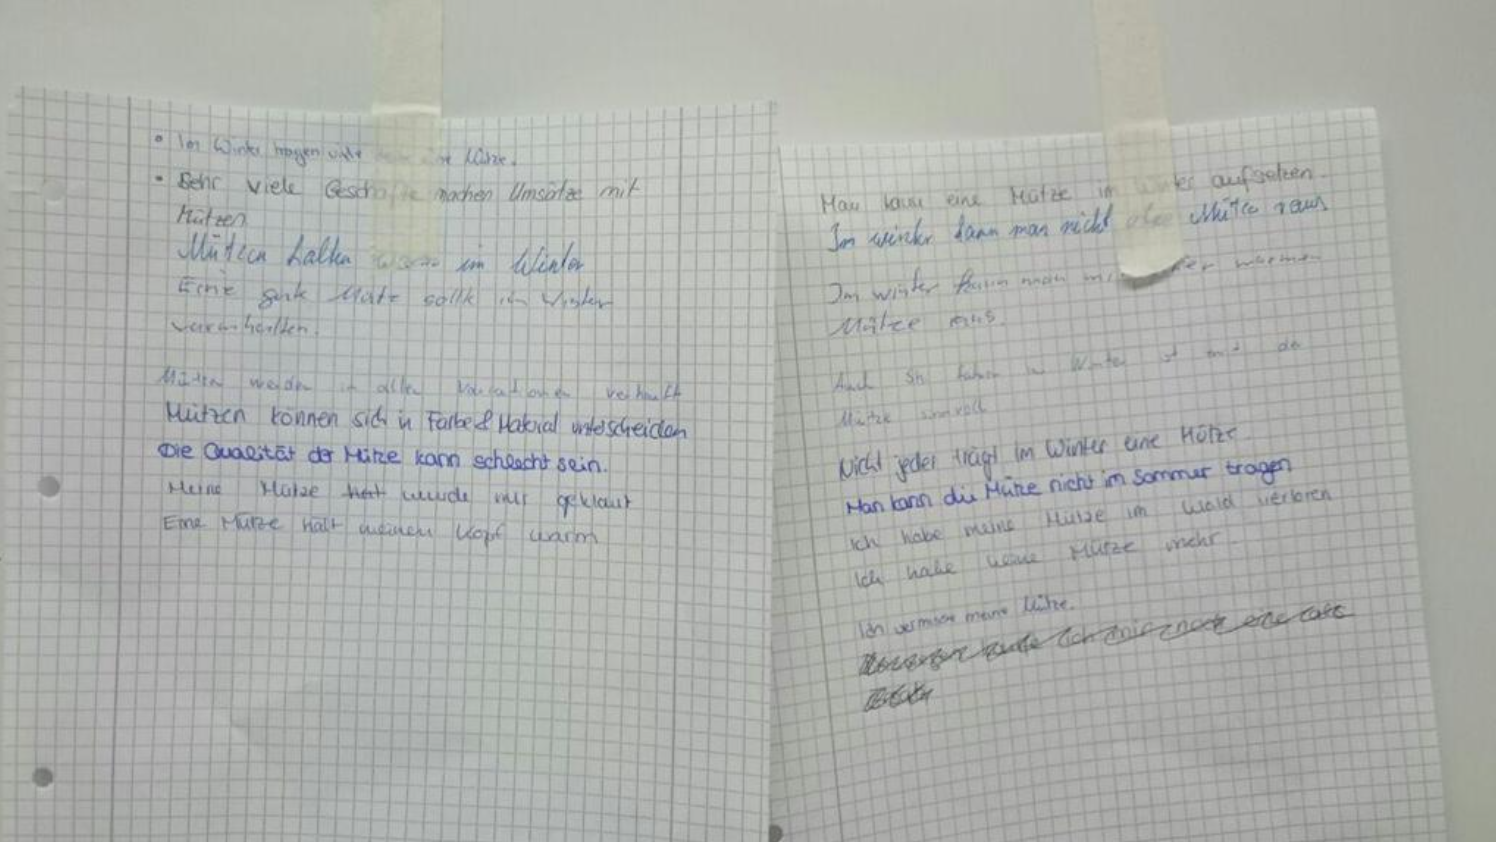 • Im Winter tragen viele eine Mütze.
• Sehr viele Geschäfte machen Umsätze mit
Mützen
Mützen halten warm im Winter
Eine gute Mütze sollte im Winter
warmhalten.
Mützen werden in allen Variationen verkauft
Mützen können sich in Farbe & Material unterscheiden
Die Qualität der Mütze kann schlecht sein.
Meine Mütze wurde mir geklaut
Eine Mütze hält meinen Kopf warm
Man kann eine Mütze im Winter aufsetzen.
Im winter kann man nicht ohne Mütze raus
Im winter kann man warmen
Mütze raus.
Auch Ski fahren im Winter ist mit der
Mütze sinnvoll
Nicht jeder trägt im Winter eine Mütze
Man kann die Mütze nicht im Sommer tragen
Ich habe meine Mütze im Wald verloren
Ich habe keine Mütze mehr.
Ich vermisse meine Mütze.